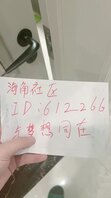 海角社区
ID:612266
与梦想同在